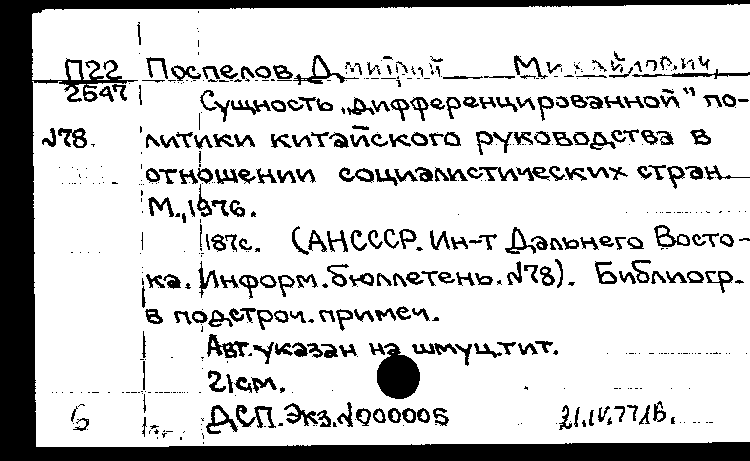 П22 Поспелов, Дмитрий Михайлович,
2547 Сущность „дифференцированной" по-
№78. литики китайского руководства в
отношении социалистических стран.
М., 1976.
187с. (АНСССР. Ин-т Дальнего Восто-
ка. Информ. бюллетень. №78). Библиогр.
в подстроч. примеч.
Авт. указан на шмуц.тит.
21см.
6 ДСП. Экз. №000005 21.IV.77